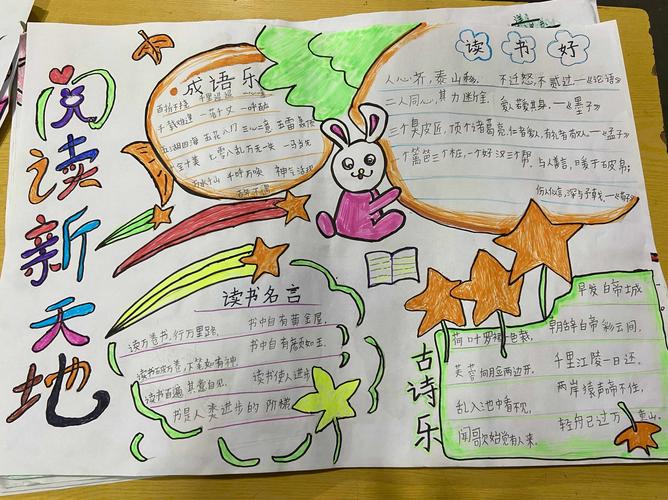 阅读新天地
成语乐
百折千挠 千里迢迢
千载难逢 一落千丈 一呼百应
五湖四海 五花八门 三心二意 五雷轰顶
全十美 七零八乱 万无一失 一马当先
万水千山 千呼万唤 神气活现
读书好
人心齐,泰山移。
二人同心,其力断金。
三个臭皮匠,顶个诸葛亮。
一个篱笆三个桩,一个好汉三个帮。
不迁怒,不贰过—《论语》
爱人若爱其身。—《墨子》
仁者爱人,有礼者敬人—《孟子》
与人善言,暖于布帛;
伤人以言,深于矛戟。—《荀子》
读书名言
读万卷书,行万里路。
书中自有黄金屋,
书中自有颜如玉。
读书破万卷,下笔如有神。
读书百遍,其意自见。
读书使人进步
书是人类进步的阶梯
古诗乐
荷叶罗裙一色裁,
芙蓉向月应两边开。
乱入池中看不见,
闻歌次始觉有人来。
早发白帝城
朝辞白帝彩云间,
千里江陵一日还。
两岸猿声啼不住,
轻舟已过万重山。